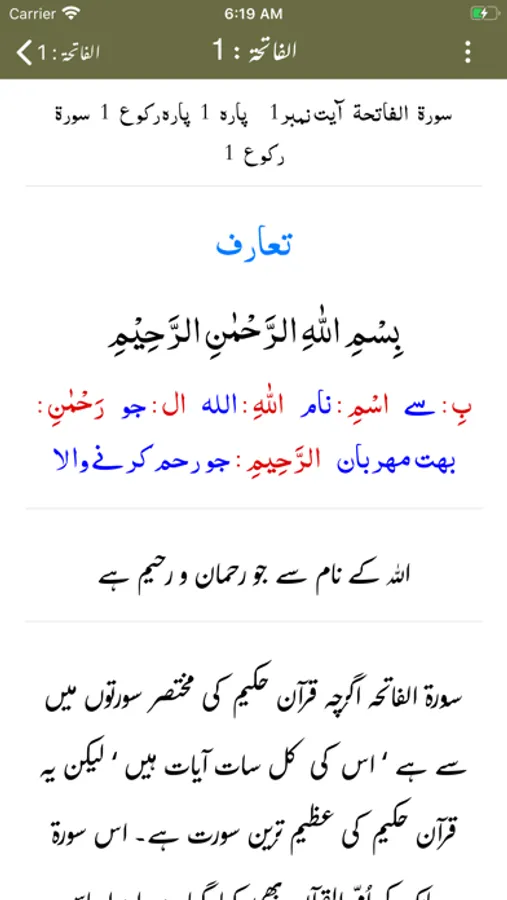 Carrier 6:19 AM
الفاتحۃ : 1
الفاتحۃ : 1
سورۃ الفاتحۃ آیت نمبر 1 پارہ 1 پارہ رکوع 1 سورۃ
رکوع 1
تعارف
بِسْمِ اللّٰهِ الرَّحْمٰنِ الرَّحِيْمِ
بِ : سے اسْمِ : نام اللّٰهِ : الله ال : جو رَحْمٰنِ :
بہت مہربان الرَّحِيمِ : جو رحم کرنے والا
اللہ کے نام سے جو رحمان و رحیم ہے
سورۃ الفاتحہ اگرچہ قرآن حکیم کی مختصر سورتوں میں
سے ہے ‘ اس کی کل سات آیات ہیں ‘ لیکن یہ
قرآن حکیم کی عظیم ترین سورت ہے۔ اس سورۃ